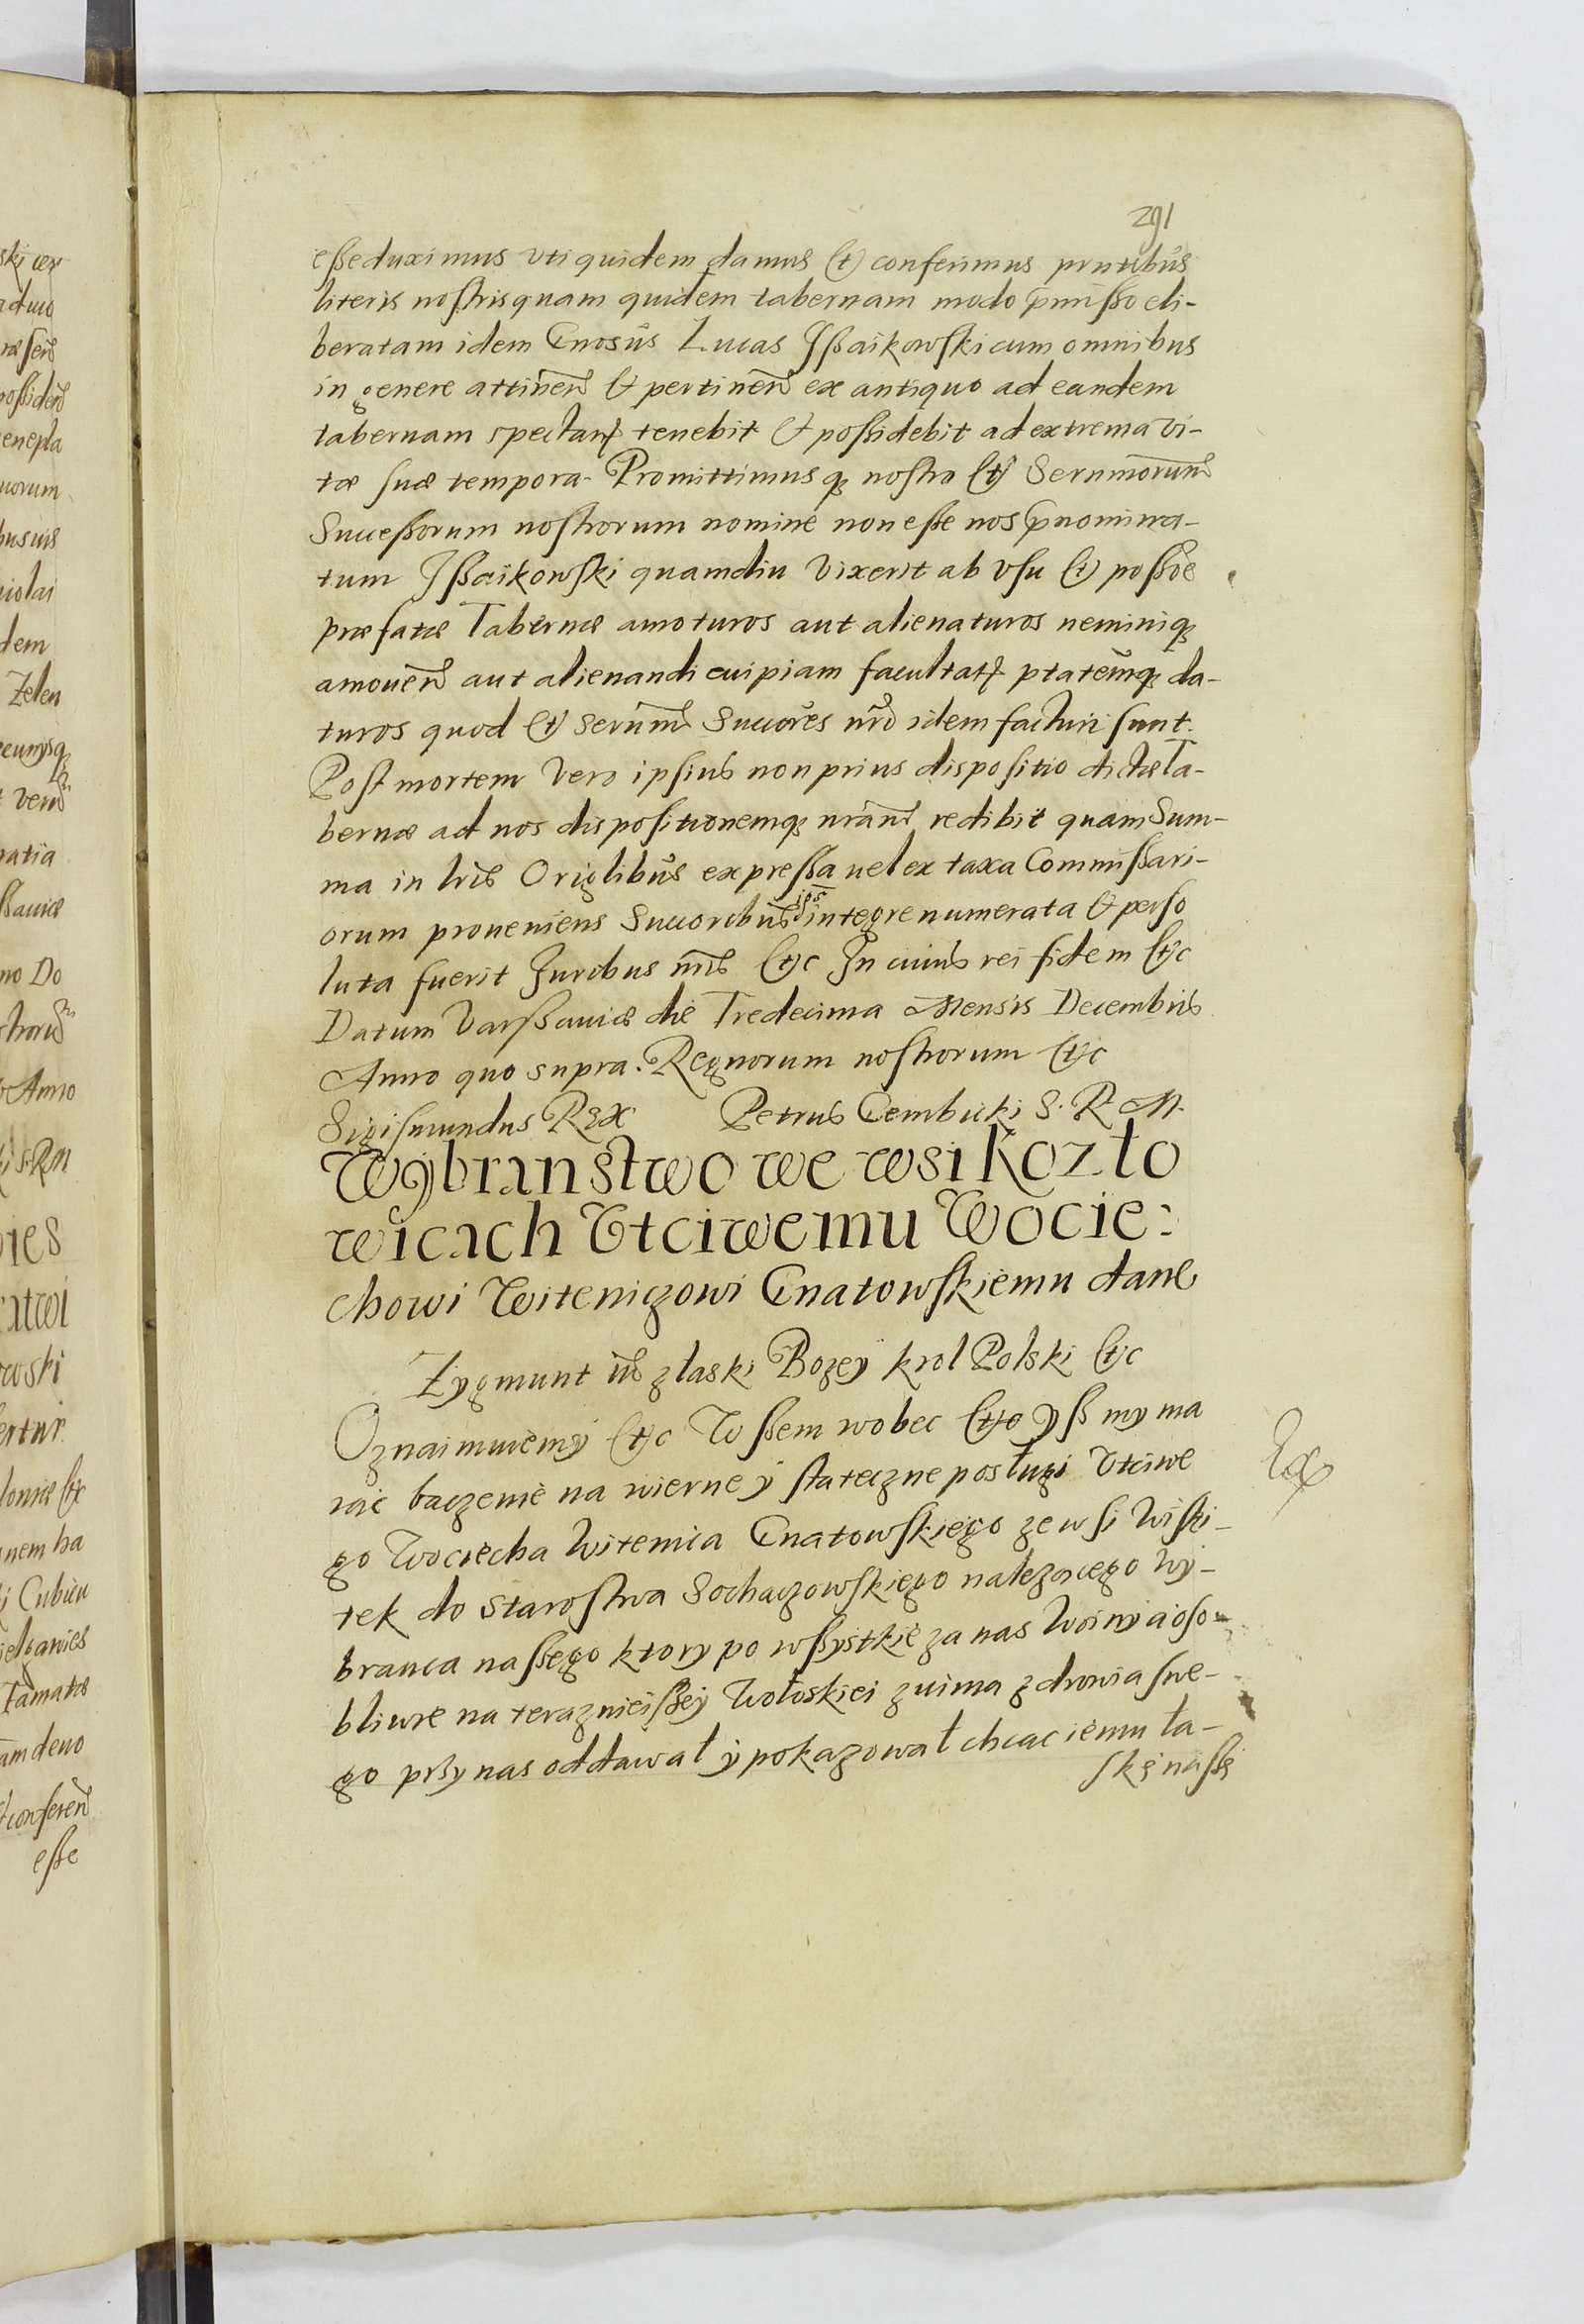 291
esse duximus vti quidem damus et conferimus pntibus
literis nostris quam quidem tabernam modo pmisso eli-
beratam idem Gnosus Lucas Issaikowski cum omnibus
in genere attinen et pertinen ex antiquo ad eandem
tabernam spectant tenebit et possidebit ad extrema vi-
tæ suæ tempora. Promittimusq nostro et Sernmorum
Successorum nostrorum nomine non esse nos pnomina-
tum Issaikowski quamdiu vixerit ab vsu et possoe
præfatæ Tabernæ amoturos aut alienaturos neminiq
amouen aut alienandi cuipiam facultat ptatemq da-
turos quod et Sernmi Succores nri idem facturi sunt.
Post mortem vero ipsius non prius dispositio dictæ Ta-
bernæ ad nos dispositionemq nram redibit quam Sum-
ma in lris Origlibus expressa uel ex taxa Commissari-
orum proueniens Succoribus ips integre numerata et perso
luta fuerit Juribus nris etc In cuius rei fidem etc
Datum Varssauiæ die Tredecima Mensis Decembris
Anno quo supra. Regnorum nostrorum etc
Sigismundus Rex Petrus Gembicki S. R. M.
Wybranstwo we wsi Kozło
wicach Vtciwemu Wocie:
chowi Witeniczowi Gnatowskiemu dane
Zygmunt iii z łaski Bozey krol Polski etc
Oznaimuiemy etc W ssem wobec etc yss my ma
iąc baczenie na wierne y stateczne posługi Vtciwe
go Wociecha Witenica Gnatowskiego ze wsi Wiski-
tek do Starostwa Sochaczowskiego należącego Wy-
branca nassego ktory po wssystkie za nas Woiny a oso-
bliwie na teraznieissey Wołoskiei z uimą zdrowia swe-
go przy nas oddawał y pokazował chcąc iemu ła-
skę nassę